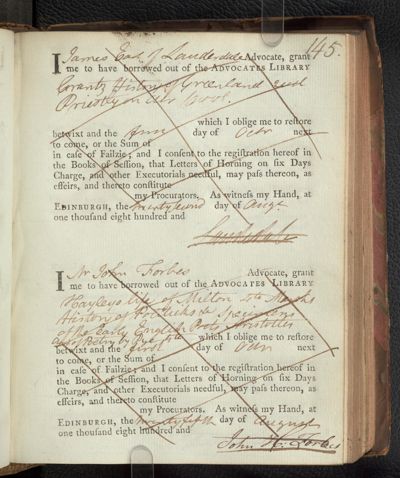 145.
I James Earl of Lauderdale Advocate, grant
me to have borrowed out of the ADVOCATES LIBRARY
Crantz History of Greenland and
Priestley on Air
which I oblige me to restore
betwixt and the first day of Octr next
to come, or the Sum of
in case of Failzie; and I consent to the registration hereof in
the Books of Session, that Letters of Horning on six Days
Charge, and other Executorials needful, may pass thereon, as
effeirs, and thereto constitute
my Procurators. As witness my Hand, at
EDINBURGH, the twenty second day of Augt
one thousand eight hundred and
Lauderdale
I Mr John Forbes Advocate, grant
me to have borrowed out of the ADVOCATES LIBRARY
Hayley's life of Milton
History of Specimens
of the Early English Poets Aristotles
Poetry by Pye which I oblige me to restore
betwixt and the first day of Octr next
to come, or the Sum of
in case of Failzie; and I consent to the registration hereof in
the Books of Session, that Letters of Horning on six Days
Charge, and other Executorials needful, may pass thereon, as
effeirs, and thereto constitute
my Procurators. As witness my Hand, at
EDINBURGH, the twenty fifth day of August
one thousand eight hundred and
John H. Forbes